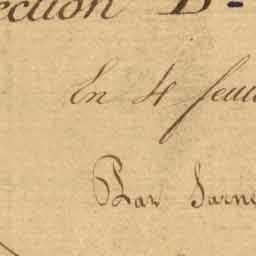 ection D.
En 4 feuil
Par Jarn